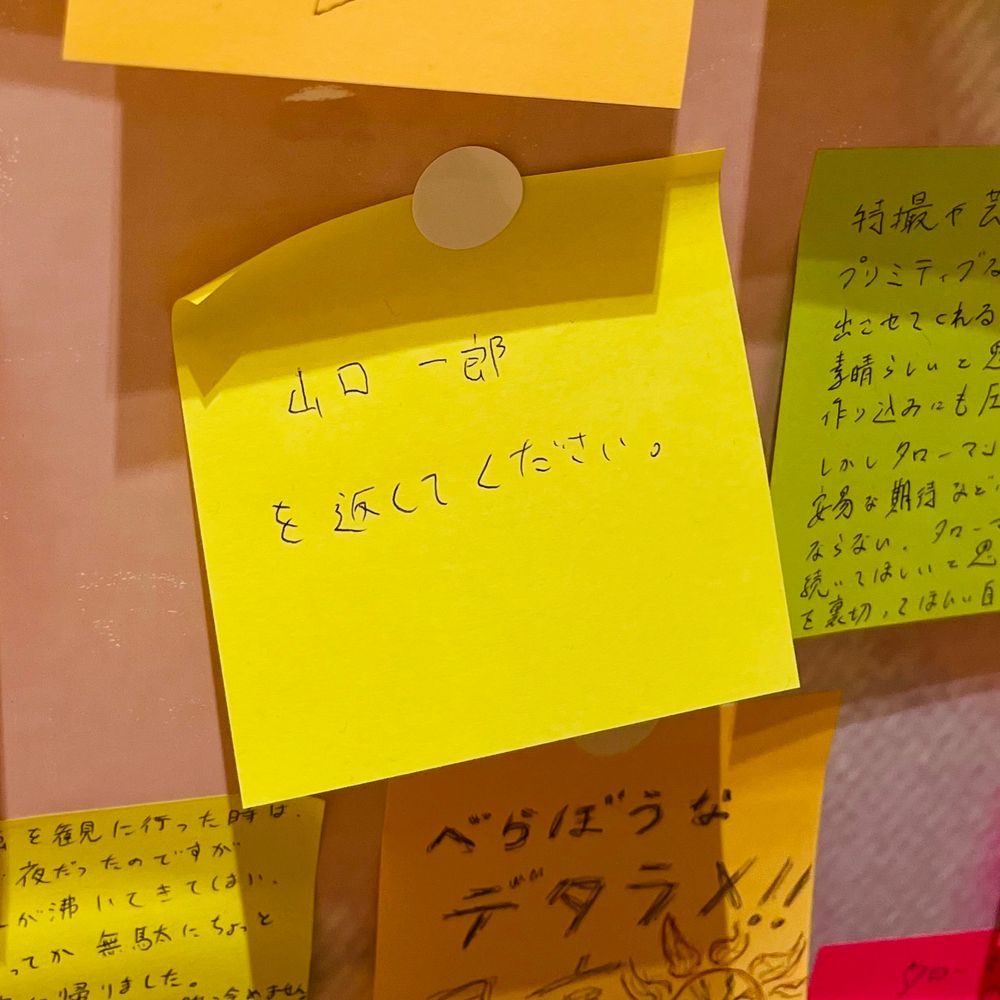 山口一郎
を返してください。
特撮や芸
プリミティブな
出させてくれる
素晴らしいと思
作り込みにも圧
しかしタローマン
安易な期待など
ならない。タローマ
続いてほしいと思
を裏切ってほしい自
を観に行った時は、
夜だったのですが
が沸いてきてしまい、
ってか無駄にちょっと
に帰りました。
べらぼうな
デタラメ!!
タロー